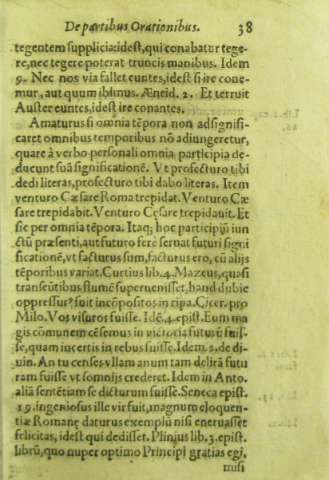 De partibus Orationibus. 38
tegentem suppliciа:idest, qui conabatur tege-
re, nec tegere poterat truncis manibus. Idem
9. Nec nos via fallet euntes, idest si ire cone-
mur, aut quum ibimus. Æneid. 2. Et terruit
Auster euntes, idest ire conantes.
Amaturus si omnia tēpora non adsignifi-
caret omnibus temporibus nō adiungeretur,
quare à verbo personali omnia participia de-
ducunt suā significationē. Vt profecturo tibi
dedi literas, profecturo tibi dabo literas. Item
venturo Cæsare Roma trepidat. Venturo Cæ
sare trepidabit. Venturo Cęsare trepidauit. Et
sic per omnia tēpora. Itaq; hoc participiū iun
ctū præsenti, aut futuro ferè seruat futuri signi
ficationē, vt facturus sum, facturus ero, cū alijs
tēporibus variat. Curtius lib. 4. Mazeus, quasi
transeūtibus flumē superuenisset, haud dubiè
oppressurꝰ fuit incōpositos in ripa. Cicer. pro
Milo. Vos visuros fuisse. Idē. 4. epist. Eum ma
gis communem cēsemus in victoria futurū fuis-
se, quam incertis in rebus fuisse. Idem. 2. de di-
uin. An tu censes vllam anum tam delirā futu
ram fuisse vt somnijs crederet. Idem in Anto.
aliā sentētiam se dicturum fuisse. Seneca epist.
19. ingeniosus ille vir fuit, magnum eloquen-
tiæ Romanę daturus exemplū nisi eneruasset
felicitas, idest qui dedisset. Plinius lib. 3. epist.
librū, quo nuper optimo Principi gratias egi,
misi